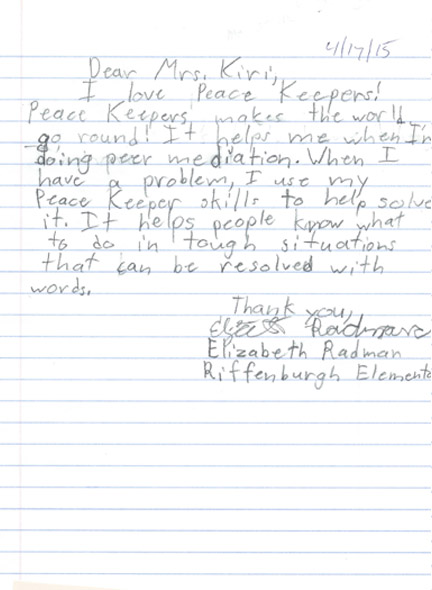 4/17/15
Dear Mrs. Kiri,
I love Peace Keepers!
Peace Keepers, makes the world
go round! It helps me when I'm
doing peer mediation. When I
have a problem, I use my
Peace Keeper skills to help solve
it. It helps people know what
to do in tough situations
that can be resolved with
words.
Thank you,
Radman
Elizabeth Radman
Riffenburgh Elementa